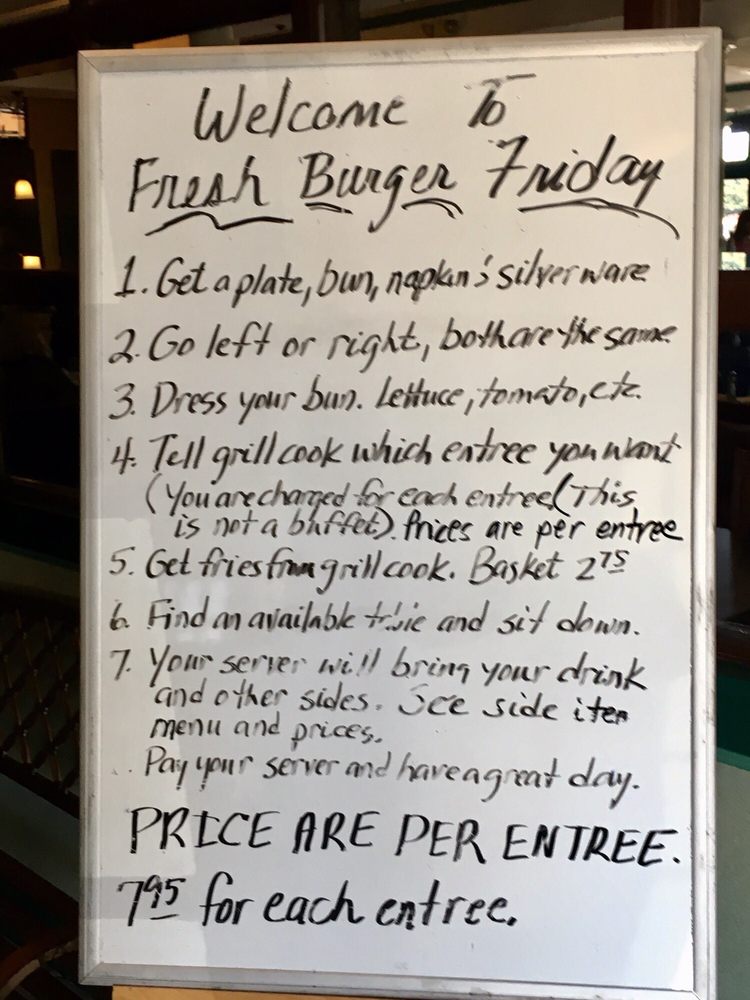 Welcome To
Fresh Burger Friday
1. Get a plate, bun, napkin & silverware
2. Go left or right, both are the same.
3. Dress your bun. Lettuce, tomato, etc.
4. Tell grill cook which entree you want
(You are charged for each entree (This
is not a buffet). Prices are per entree
5. Get fries from grill cook. Basket 2 75
6. Find an available table and sit down.
7. Your server will bring your drink
and other sides. See side item
menu and prices.
Pay your server and have a great day.
PRICE ARE PER ENTREE.
7 95 for each entree.